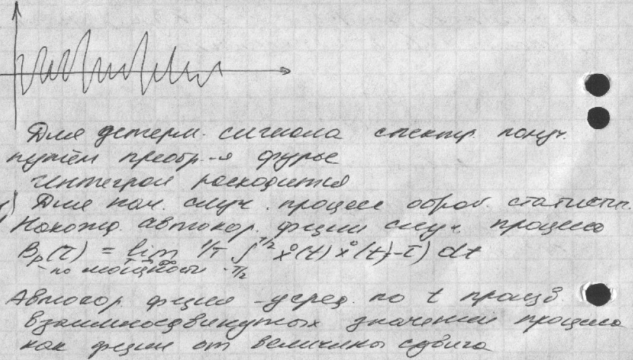 Для детерм. сигнала спектр получ.
путём преобр-я фурье
интеграл расходится
) Для нач. случ. процесс обраб. статистич.
Нахожд. автокор. фции случ. процесса
Bp(τ) = lim 1/T ∫ T/2 -T/2 x̊(t) x̊(t-τ) dt
- по мощности
Автокор. фция - усред. по t произв
взаимносдвинутых значений процесса
как фции от величины сдвига